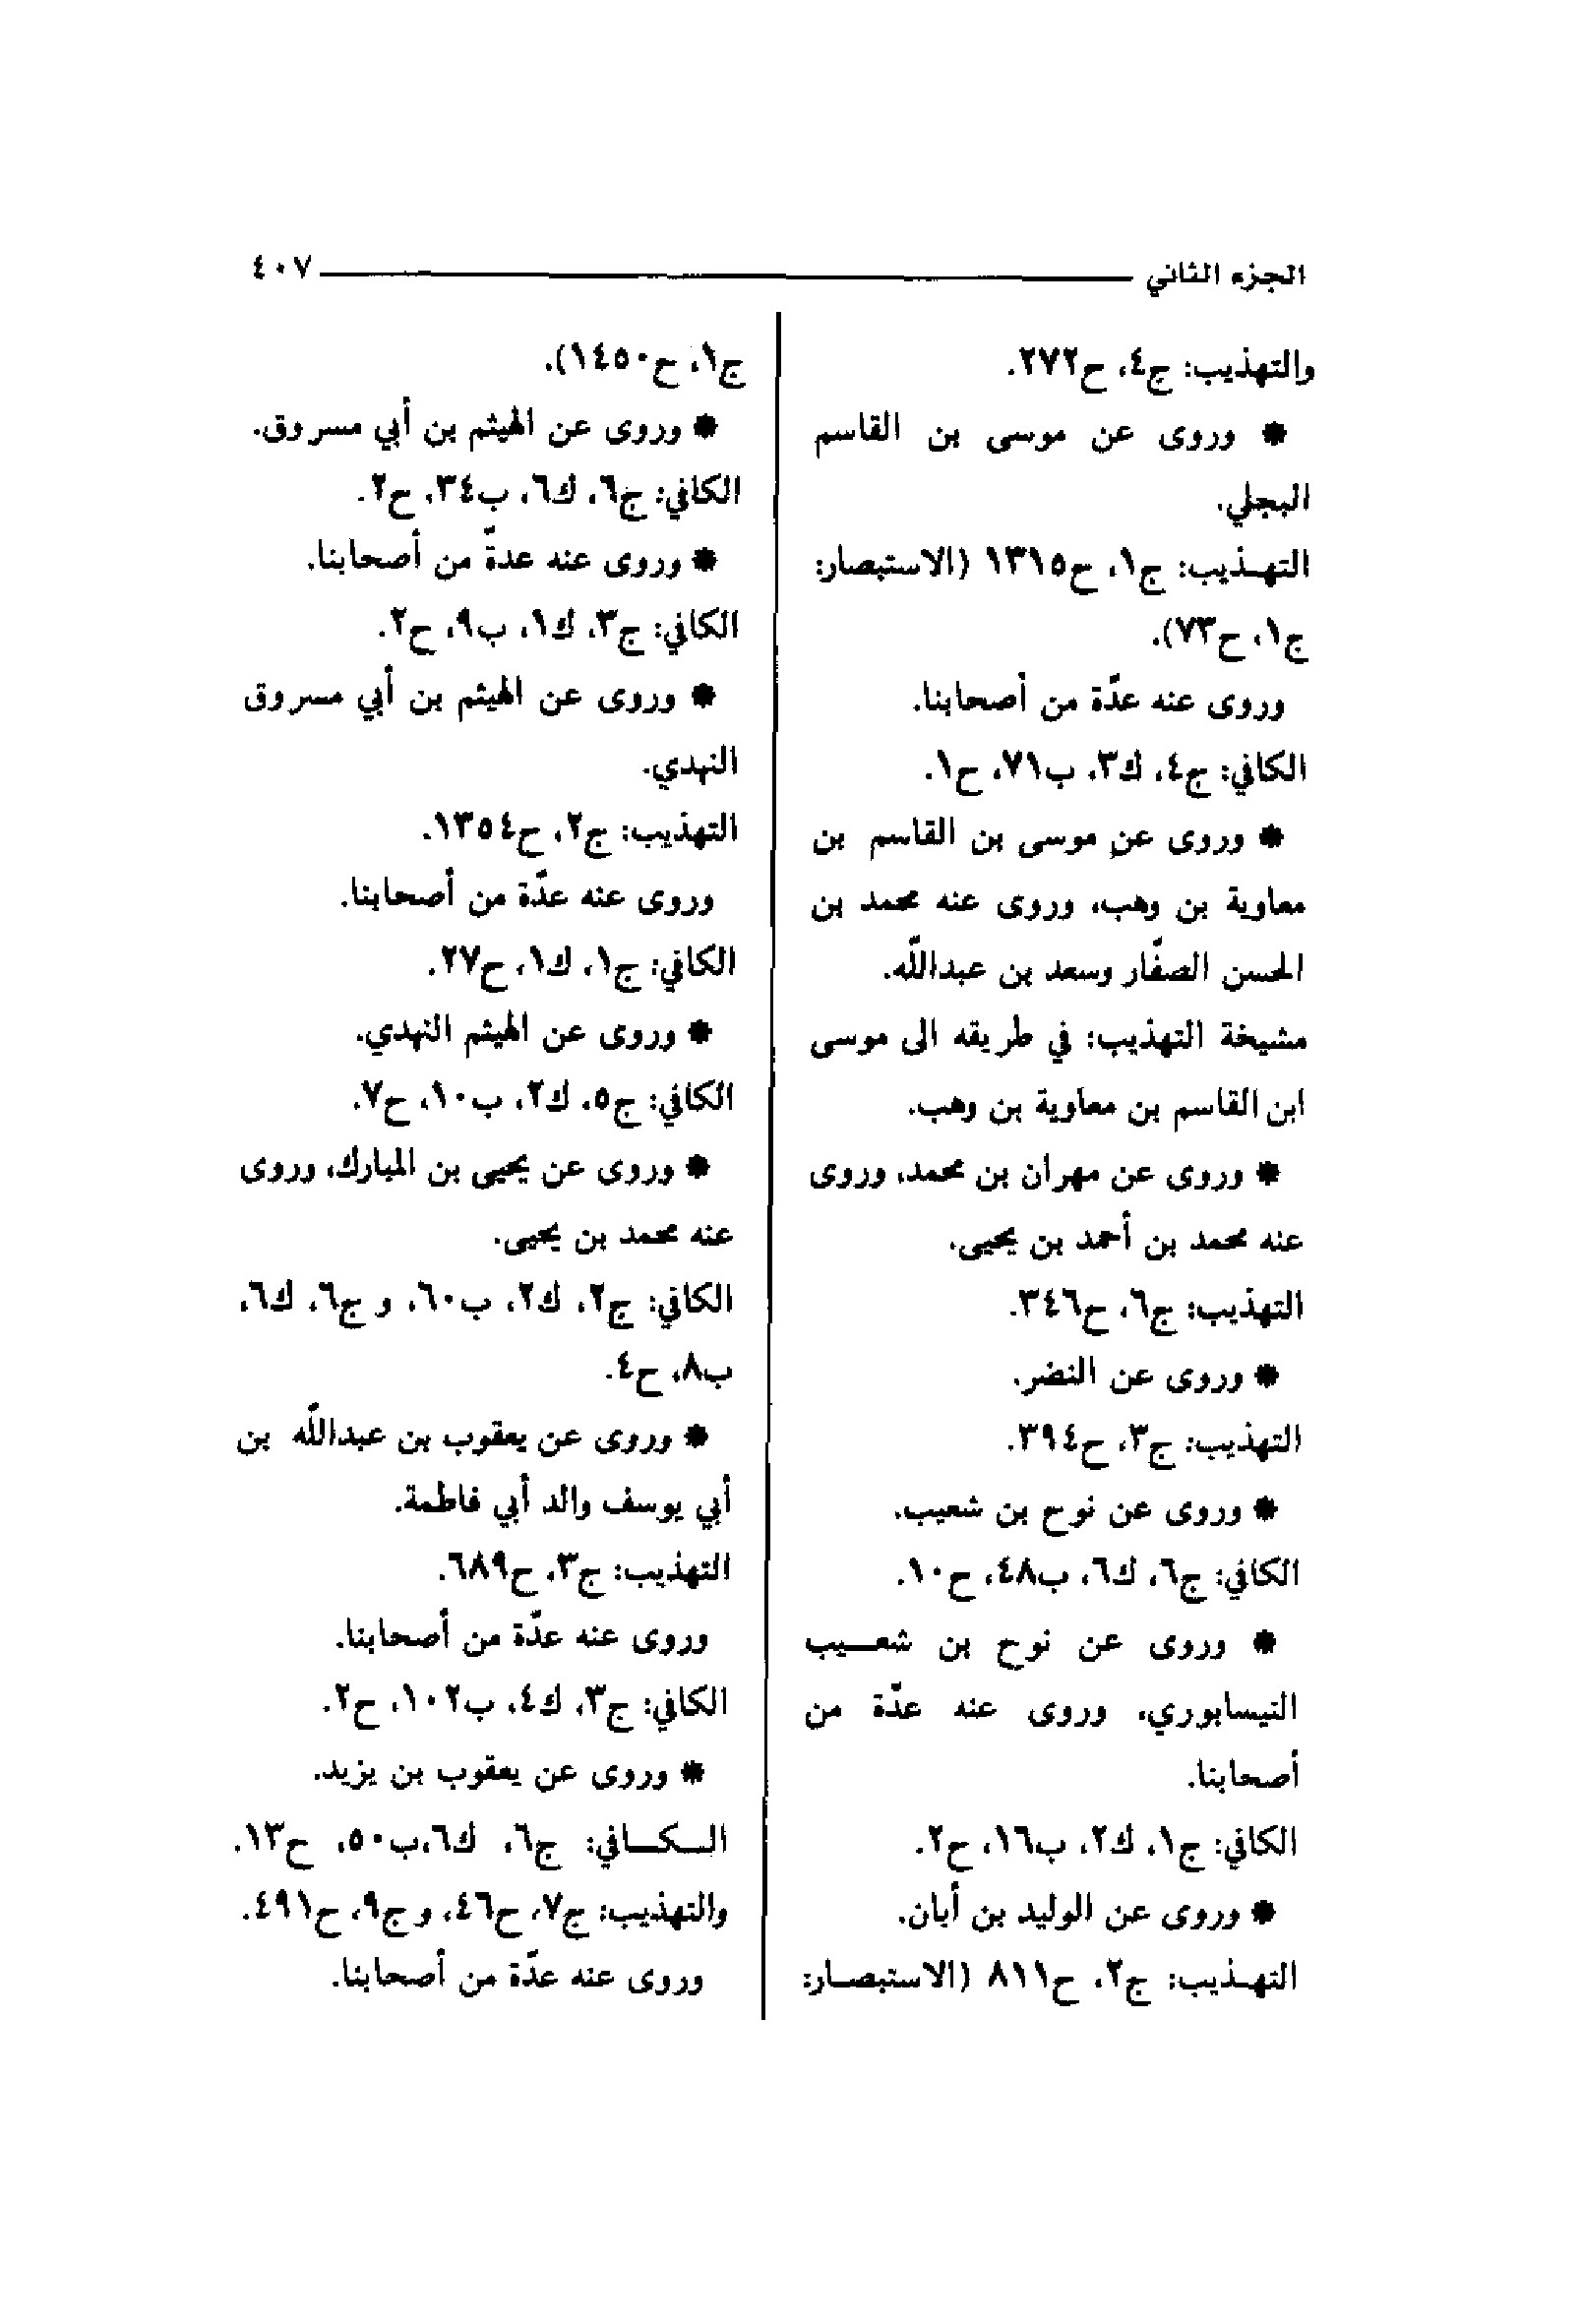 الجزء الثاني ٤٠٧
والتهذيب: ج٤، ح٢٧٢.
* وروى عن موسى بن القاسم
البجلي.
التهـذيب: ج١، ح١٣١٥ (الاستبصار:
ج١، ح٧٣).
وروى عنه عدّة من أصحابنا.
الكافي: ج٤، ك٣، ب٧١، ح١.
* وروى عن موسى بن القاسم بن
معاوية بن وهب، وروى عنه محمد بن
الحسن الصفّار وسعد بن عبدالله.
مشيخة التهذيب: في طريقه الى موسى
ابن القاسم بن معاوية بن وهب.
* وروى عن مهران بن محمد، وروى
عنه محمد بن أحمد بن يحيى.
التهذيب: ج٦، ح٣٤٦.
* وروى عن النضر.
التهذيب: ج٣، ح٣٩٤.
* وروى عن نوح بن شعيب.
الكافي: ج٦، ك٦، ب٤٨، ح١٠.
* وروى عن نوح بن شعـيب
النيسابوري، وروى عنه عدّة من
أصحابنا.
الكافي: ج١، ك٢، ب١٦، ح٢.
* وروى عن الوليد بن أبان.
التهـذيب: ج٢، ح٨١١ (الاستبصـار:
ج١، ح١٤٥٠).
* وروى عن الهيثم بن أبي مسروق.
الكافي: ج٦، ك٦، ب٣٤، ح٢.
* وروى عنه عدّة من أصحابنا.
الكافي: ج٣، ك١، ب٩، ح٢.
* وروى عن الهيثم بن أبي مسروق
النهدي.
التهذيب: ج٢، ح١٣٥٤.
وروى عنه عدّة من أصحابنا.
الكافي: ج١، ك١، ح٢٧.
* وروى عن الهيثم النهدي.
الكافي: ج٥، ك٢، ب١٠، ح٧.
* وروى عن يحيى بن المبارك، وروى
عنه محمد بن يحيى.
الكافي: ج٢، ك٢، ب٦٠، و ج٦، ك٦،
ب٨، ح٤.
* وروى عن يعقوب بن عبدالله بن
أبي يوسف والد أبي فاطمة.
التهذيب: ج٣، ح٦٨٩.
وروى عنه عدّة من أصحابنا.
الكافي: ج٣، ك٤، ب١٠٢، ح٢.
* وروى عن يعقوب بن يزيد.
الـكـافي: ج٦، ك٦،ب٥٠، ح١٣.
والتهذيب: ج٧، ح٤٦، و ج٩، ح٤٩١.
وروى عنه عدّة من أصحابنا.